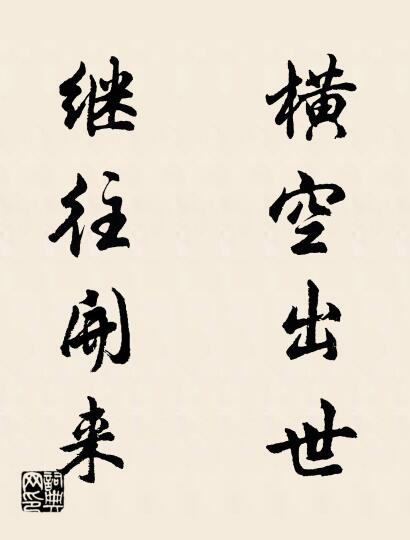 横空出世
继往開来
詞典网印